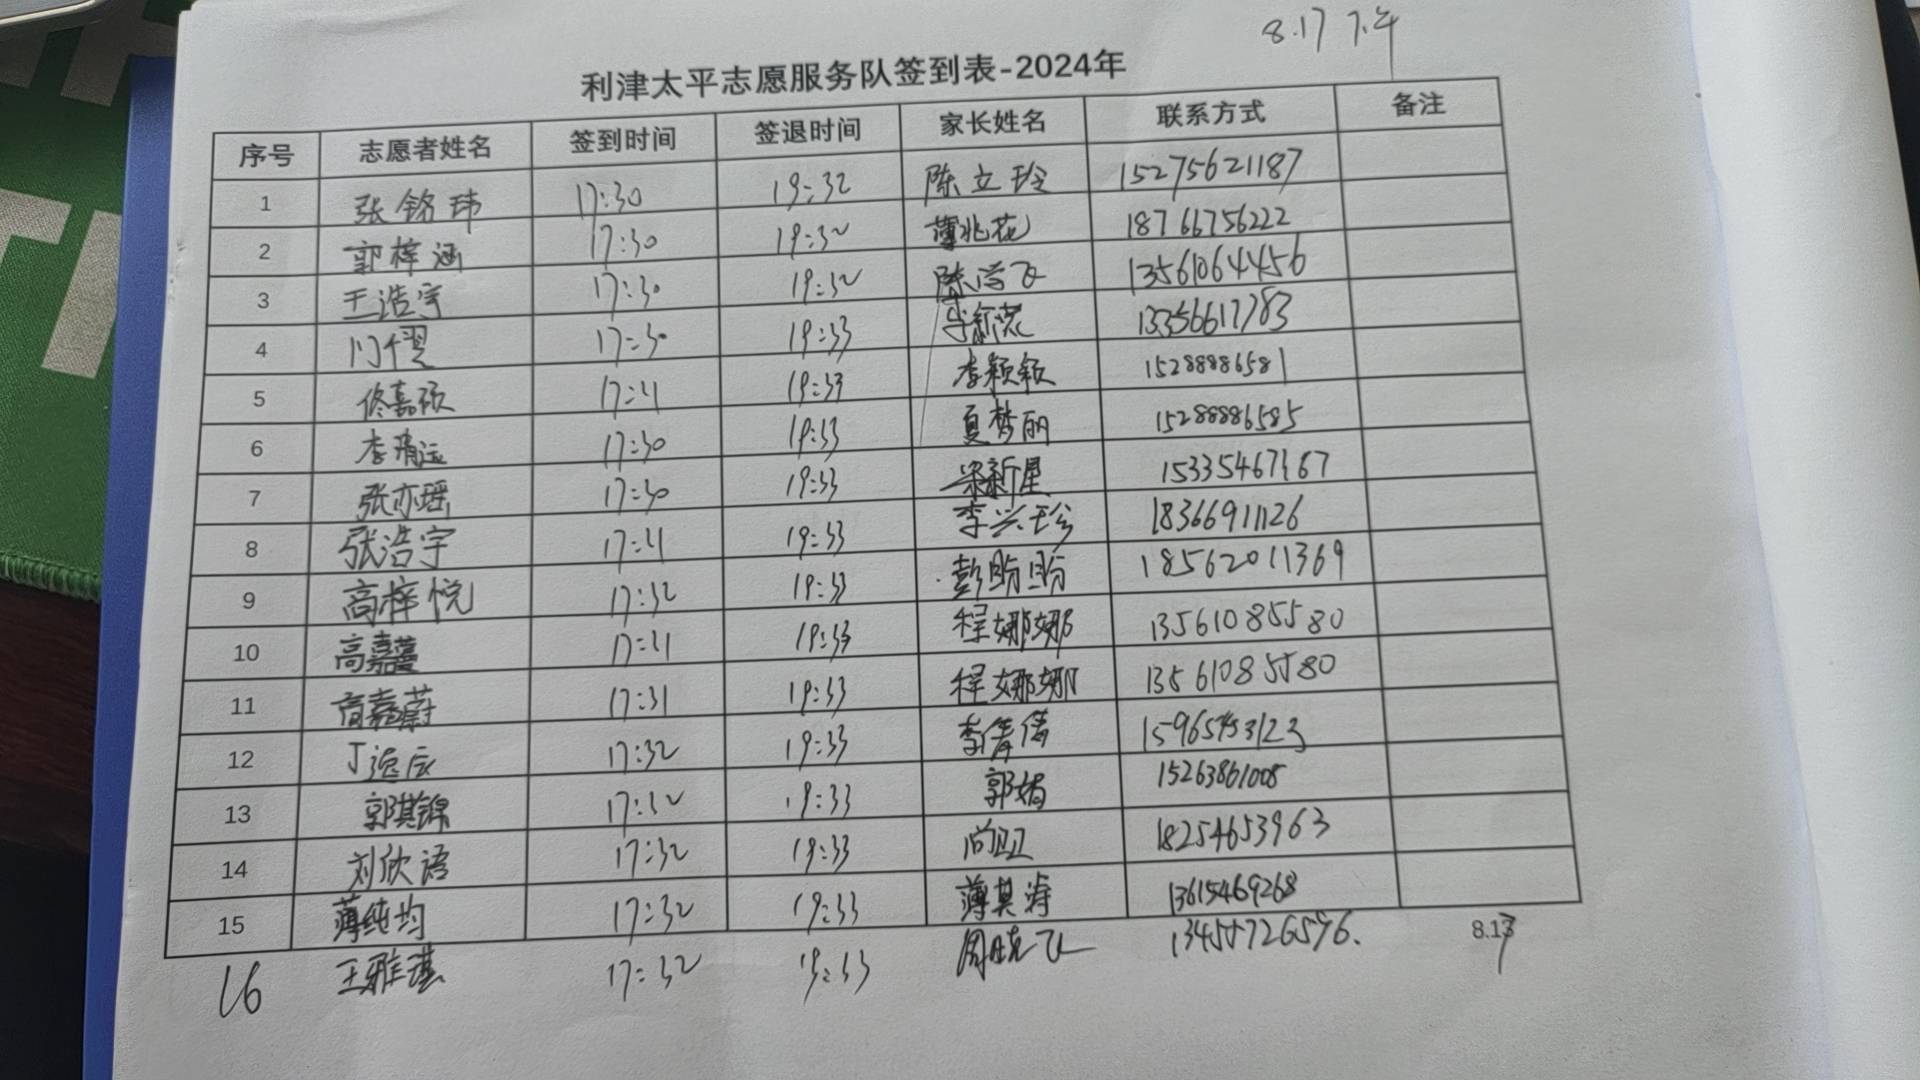 8.17 下午
利津太平志愿服务队签到表-2024年
序号 志愿者姓名 签到时间 签退时间 家长姓名 联系方式 备注
1 张铭玮 17:30 19:32 陈立玲 15275621187
2 郭梓涵 17:30 19:32 薄兆花 18766756222
3 王浩宇 17:30 19:32 陈学飞 13561064456
4 17:30 19:33 13356617783
5 佟嘉硕 17:31 19:33 李颖颖 15288886581
6 李清运 17:30 19:33 夏梦丽 15288886585
7 张亦瑶 17:30 19:33 梁新星 15335467167
8 张浩宇 17:31 19:33 李兴珍 18366911126
9 高梓悦 17:32 19:33 彭盼盼 18562011369
10 高嘉蔓 17:31 19:33 程娜娜 13561085580
11 高嘉蔚 17:31 19:33 程娜娜 13561085580
12 丁逸辰 17:32 19:33 李倩倩
13 郭其锦 17:32 19:33 郭娟 15263861008
14 刘欣语 17:32 19:33 尚卫卫 18254653963
15 薄纯均 17:32 19:33 薄其涛 13615469268
16 王雅琪 17:32 19:33 周晓飞 13455726596.